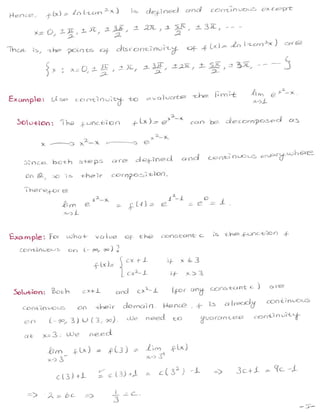 Hence, f(x) = ln(tan²x) is defined and continuous except
x = 0, ± π/2, ± π, ± 3π/2, ± 2π, ± 5π/2, ± 3π, ...
That is, the points of discontinuity of f(x) = ln(tan²x) are
{ x : x = 0, ± π/2, ± π, ± 3π/2, ± 2π, ± 5π/2, ± 3π, ... }
Example: Use continuity to evaluate the limit lim x→1 e^(x²-x).
Solution: The function f(x) = e^(x²-x) can be decomposed as
x → x²-x → e^(x²-x)
Since both steps are defined and continuous everywhere
on ℝ, so is their composition.
Therefore
lim x→1 e^(x²-x) = f(1) = e^(1²-1) = e^0 = 1.
Example: For what value of the constant c is the function f
continuous on (-∞, ∞)?
f(x) = { cx+1 if x ≤ 3
cx²-1 if x > 3
Solution: Both cx+1 and cx²-1 (for any constant c) are
continuous on their domain. Hence, f is already continuous
on (-∞, 3) ∪ (3, ∞). We need to guarantee continuity
at x=3. We need
lim x→3⁻ f(x) = f(3) = lim x→3⁺ f(x)
c(3)+1 = c(3)+1 = c(3²)-1 ⇒ 3c+1 = 9c-1
⇒ 2 = 6c ⇒ 1/3 = c.